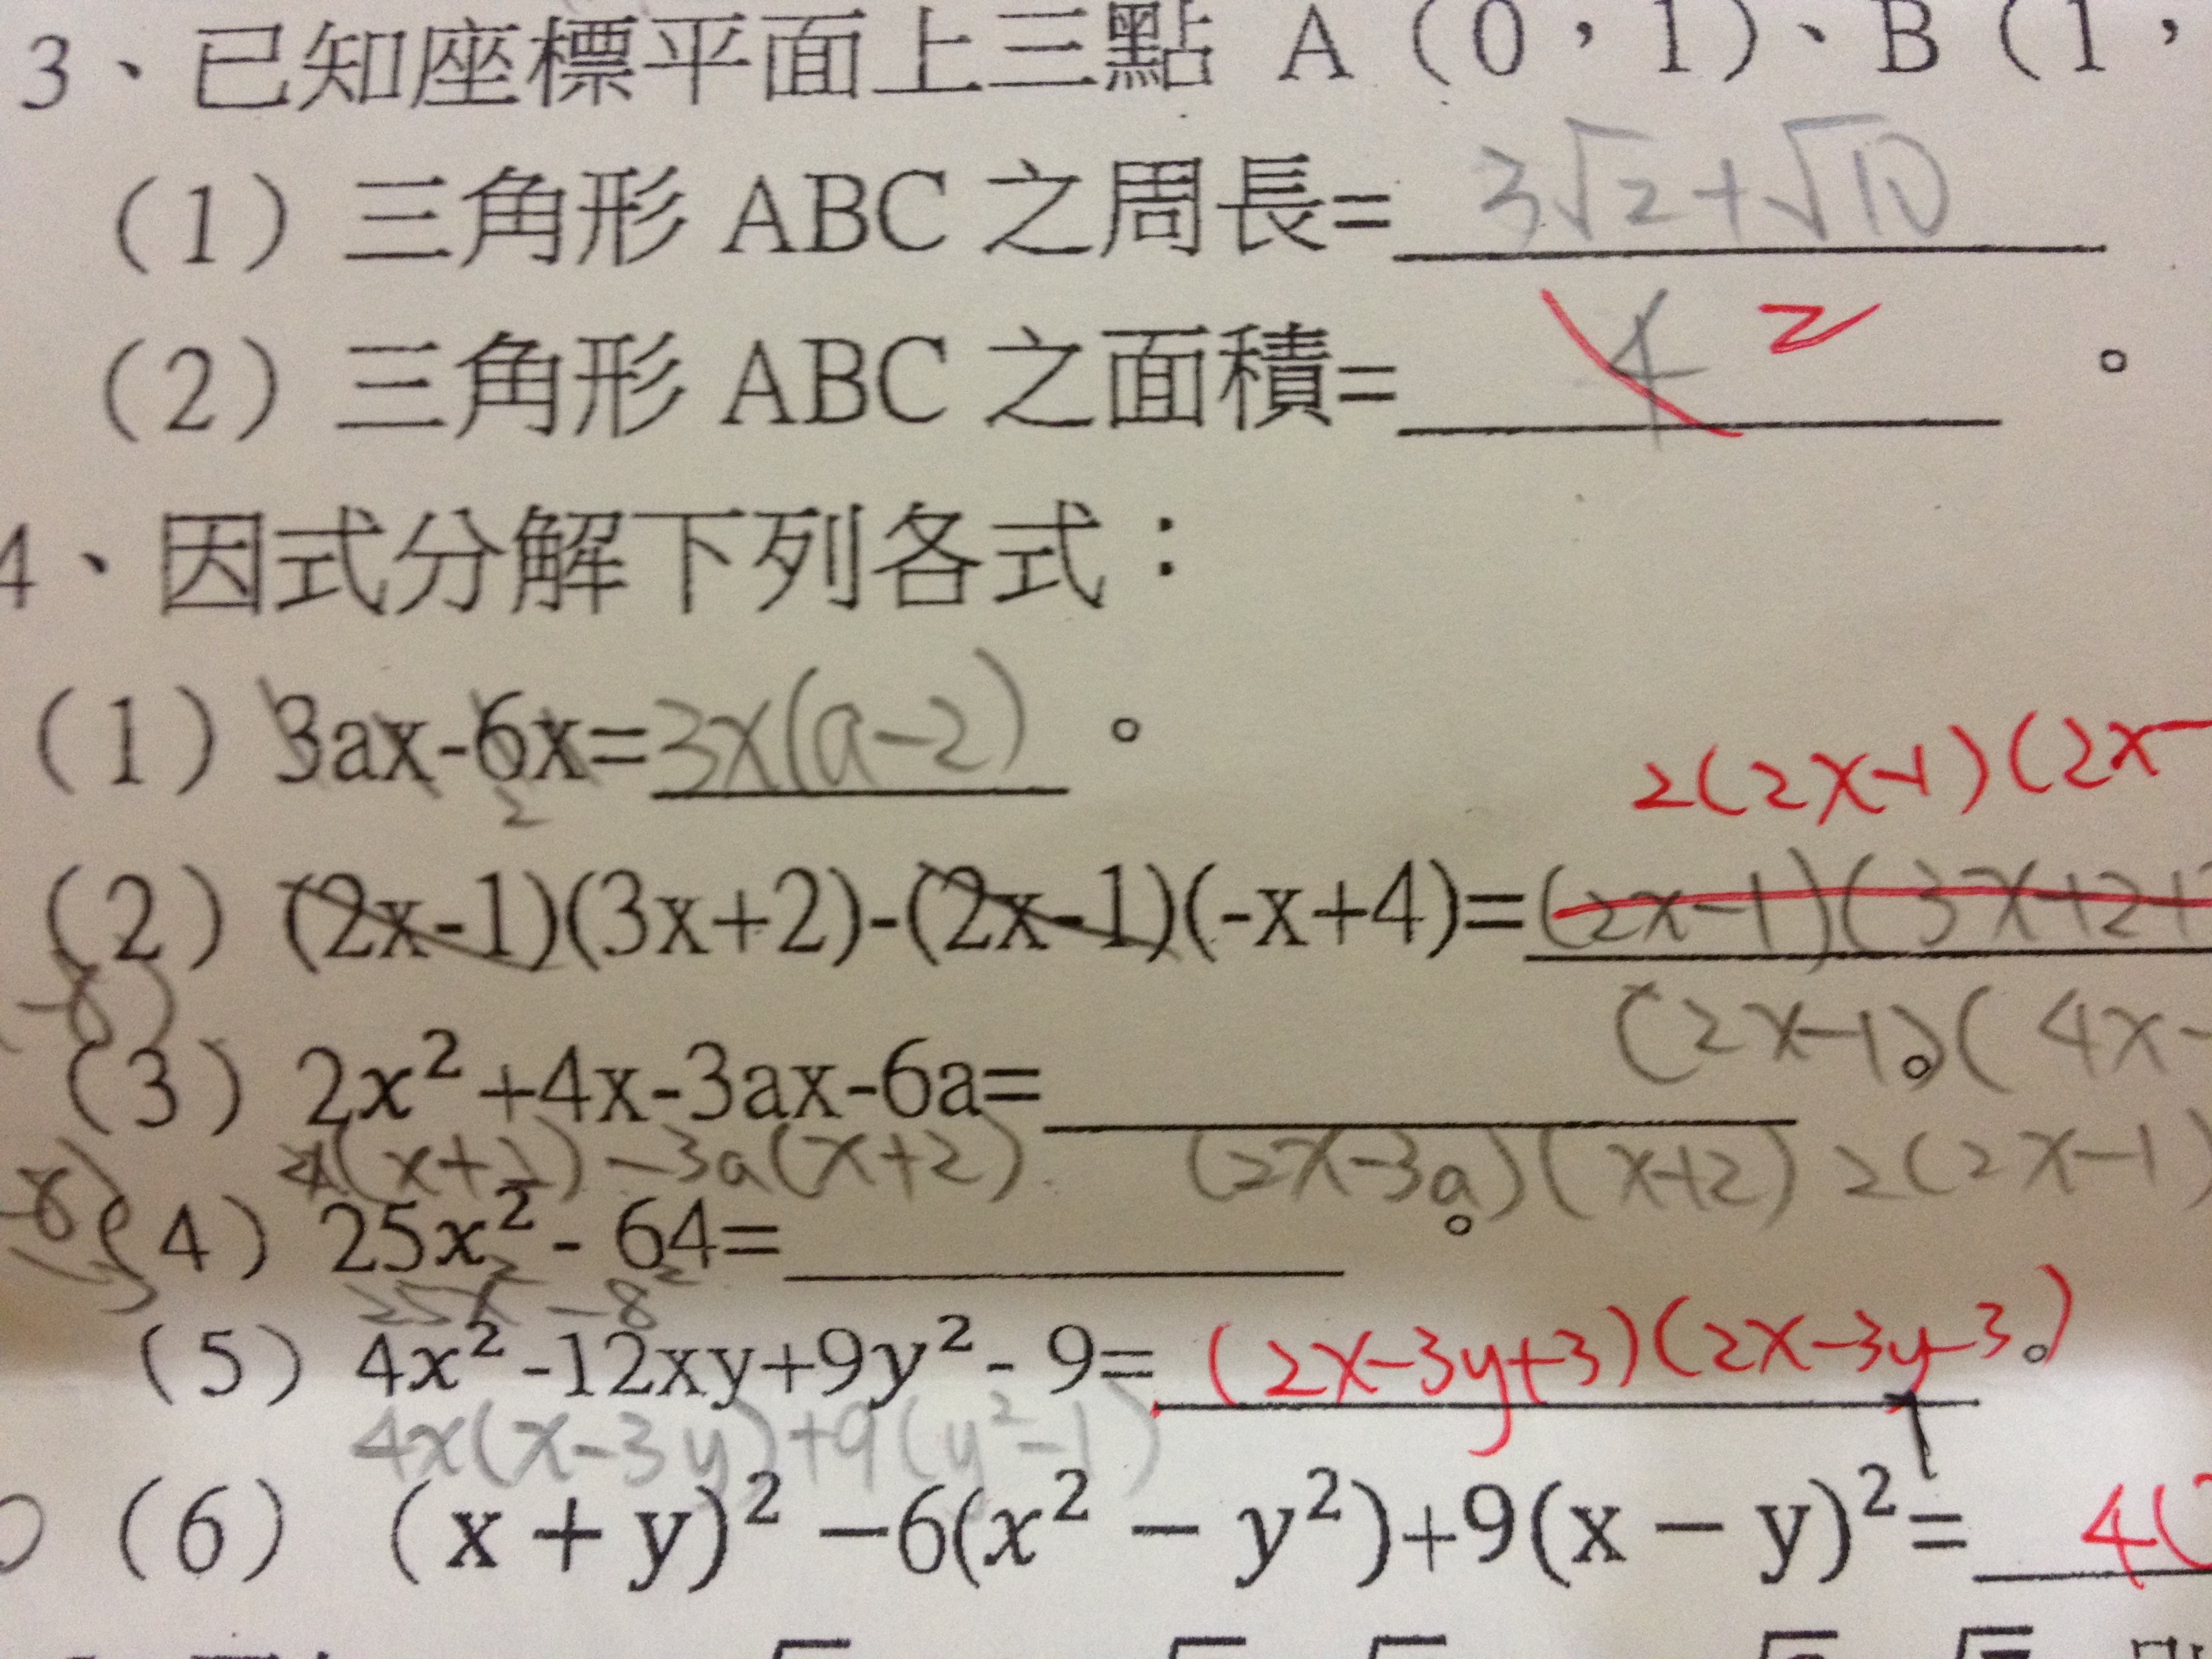 3、已知座標平面上三點 A（0，1）、B（1，
（1）三角形 ABC 之周長= 3√2+√10
（2）三角形 ABC 之面積= 4 2 。
4、因式分解下列各式：
（1）3ax-6x=3x(a-2) 。
2
2(2x-1)(2x-
（2）(2x-1)(3x+2)-(2x-1)(-x+4)=(2x-1)(3x+2+
(2x-1)(4x-
（3）2x²+4x-3ax-6a= 。
(x+2)-3a(x+2) (2x-3a)(x+2) 2(2x-1)
（4）25x²- 64= 。
25x²-8²
（5）4x²-12xy+9y²- 9= (2x-3y+3)(2x-3y-3)。
4x(x-3y)+9(y²-1)
（6）（x + y)² −6(x² − y²)+9(x − y)²= 4(